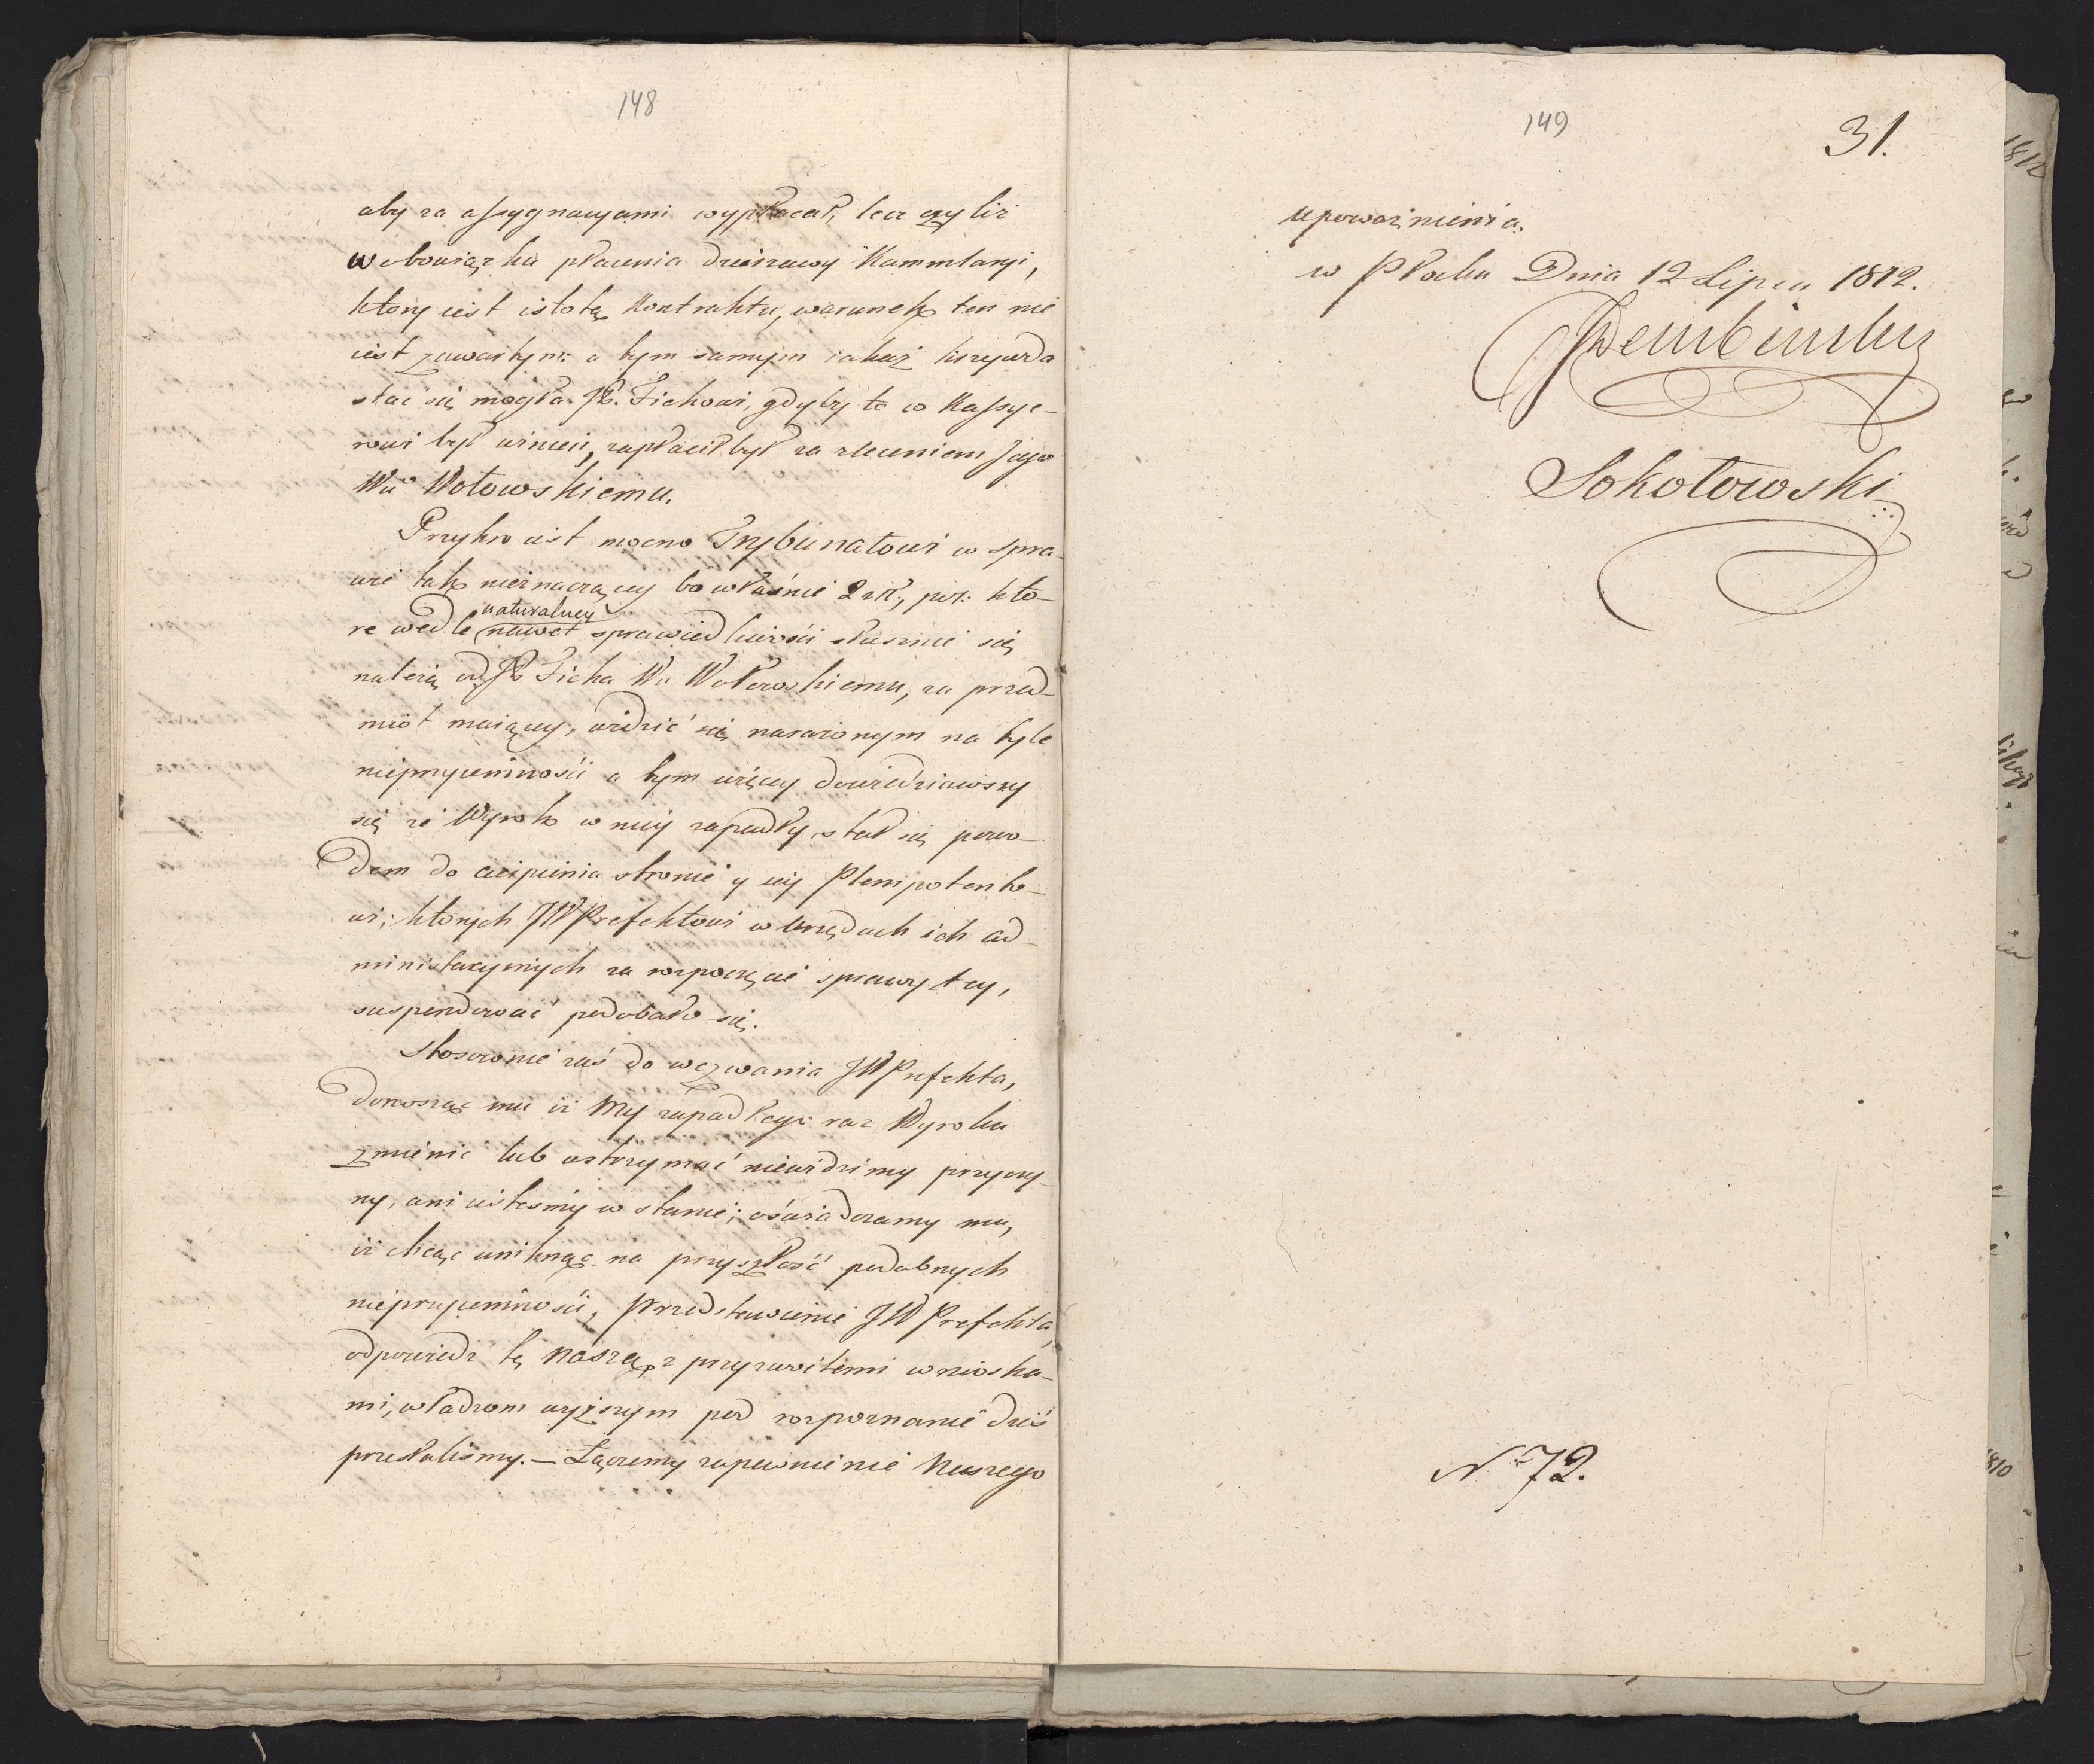 148
aby za assygnacyami wypłacał, lecz czyliż
w obowiązku płacenia dzierżawy Kammlaryi,
ktory iest istotą Kontraktu, warunek ten nie
iest zawartym: a tym samym iakaż krzywda
stać się mogła JP. Fichowi, gdyby to co Kassye-
rowi był winien, zapłacił był za zleceniem Jego
Wu Wołowskiemu.
Przykro iest mocno Trybunałowi w spra-
wie tak nieznaczącey bo właśnie 2 zł., pol: kto-
re wedle nawet naturalney sprawiedliwości słusznie się
należą od JP Ficha Wu Wołowskiemu, za przed-
miot maiącey, widzieć się narażonym na tyle
nieprzyiemności a tym więcey dowiedziawszy
się że Wyrok w niey zapadły, stał się powo-
dem do cierpienia stronie y iey Plenipotento-
wi; których JWPrefektowi w Urzędach ich ad-
ministacyinych za rozpoczęcie sprawy tey,
suspendować podobało się.
Stosownie zaś do wezwania JWPrefekta,
donosząc mu iż My zapadłego raz Wyroku
zmienić lub wstrzymać niewidzimy przyczy-
ny, ani iesteśmy w stanie; oświadczamy mu,
iż chcąc uniknąć na przyszłość podobnych
nieprzyiemności, przedstawienie JWPrefekta,
odpowiedź tę naszą z przyzwoitemi wnioska-
mi, władzom wyższym pod rozpoznanie dziś
przesłaliśmy. — Łączemy zapewnienie Naszego
149
31.
upoważnienia.
w Płocku Dnia 12 Lipca 1812.
Dembinsky
Sokołowski
N 72.